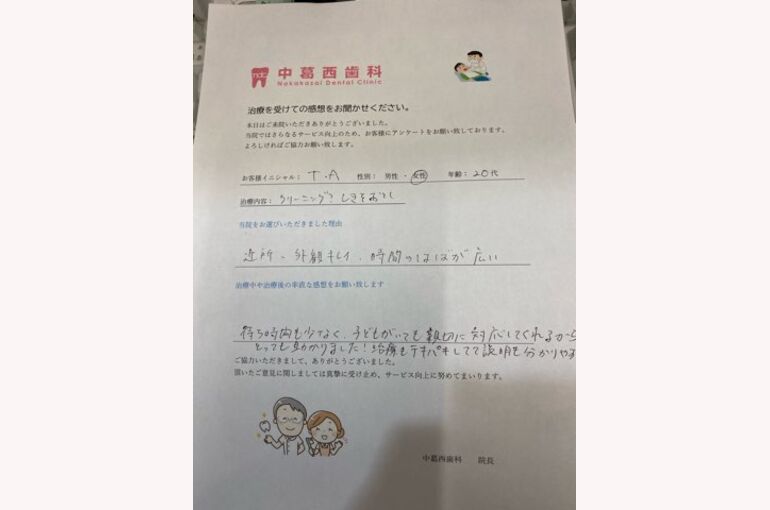 ndc
中葛西歯科
Nakakasai Dental Clinic
治療を受けての感想をお聞かせください。
本日はご来院いただきありがとうございました。
当院ではさらなるサービス向上のため、お客様にアンケートをお願い致しております。
よろしければご協力お願い致します。
お客様イニシャル： T.A 性別： 男性 ・ 女性 年齢：20代
治療内容： クリーニング、しきそおとし
当院をお選びいただきました理由
近所、外観キレイ、時間のはばが広い
治療中や治療後の率直な感想をお願い致します
待ち時間も少なく、子どもがいても親切に対応してくれるから
とっても助かりました！治療もテキパキしてて説明も分かりやす
ご協力いただきまして、ありがとうございました。
頂いたご意見に関しましては真摯に受け止め、サービス向上に努めてまいります。
中葛西歯科 院長